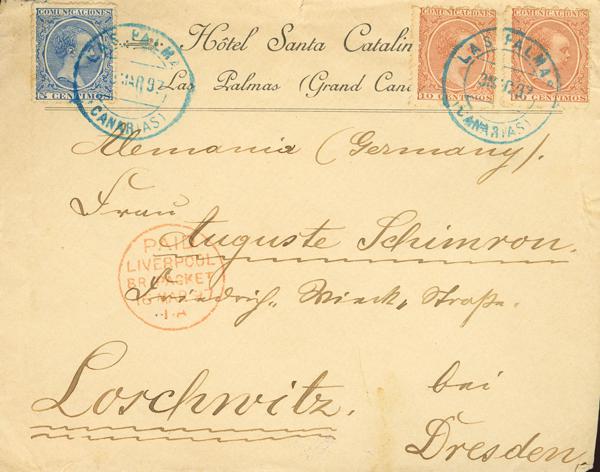 COMUNICACIONES
5 CENTIMOS
COMUNICACIONES
10 CENTIMOS
COMUNICACIONES
10 CENTIMOS
LAS PALMAS
(CANARIAS)
LAS PALMAS
(CANARIAS)
Hôtel Santa Catalin
Las Palmas (Grand Can
Alemania (Germany).
Frau
Auguste Schimron.
PAID
LIVERPOOL
BR. PACKET
Friedrich-Wieck-Straße.
Loschwitz. bei
Dresden.